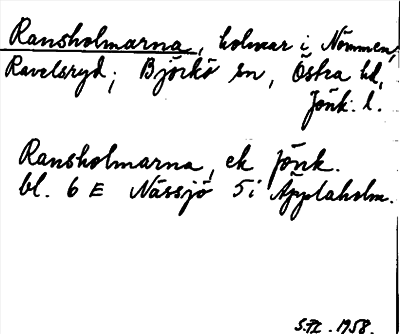 Ransholmarna, holmar i Nömmen,
Ravelsryd; Björkö sn, Östra hd,
Jönk. l.
Ransholmarna, ek Jönk.
bl. 6 E Nässjö 5 i Äpplaholm.
1958.